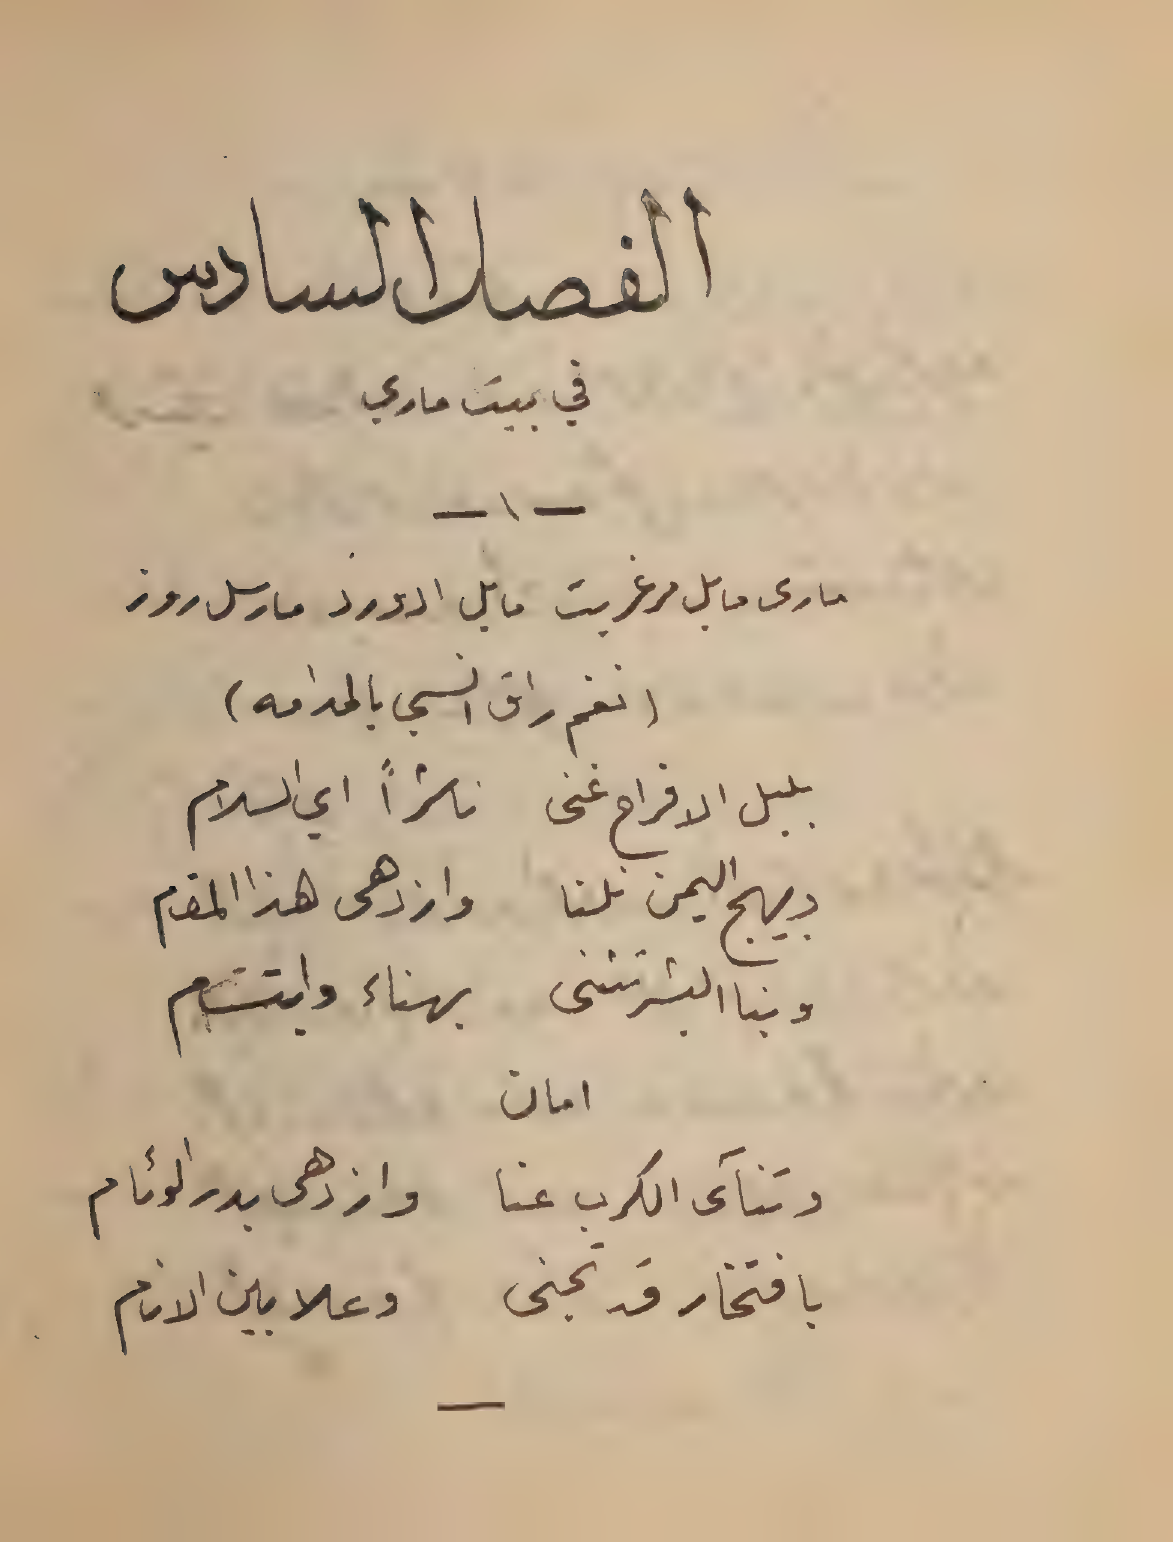 الفصل السادس
في بيت ماري
— ١ —
مارى مابل مرغريت مابل ادورد مارسل روز
(نغم راق انسي بالمدامه)
بلبل الافراح غنى ناشراً اي السلام
وبهيج اليمن نلنا وازدهى هذا المقام
وبنا البشر تثنى بهناء وابتسام
امان
وتنآى الكرب عنا وازدهى بدر الوئام
بافتخار قد تجنى وعلا بين الانام